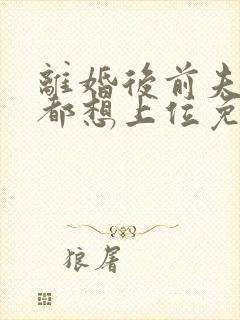 離婚後前夫
都想上位免
狼屠